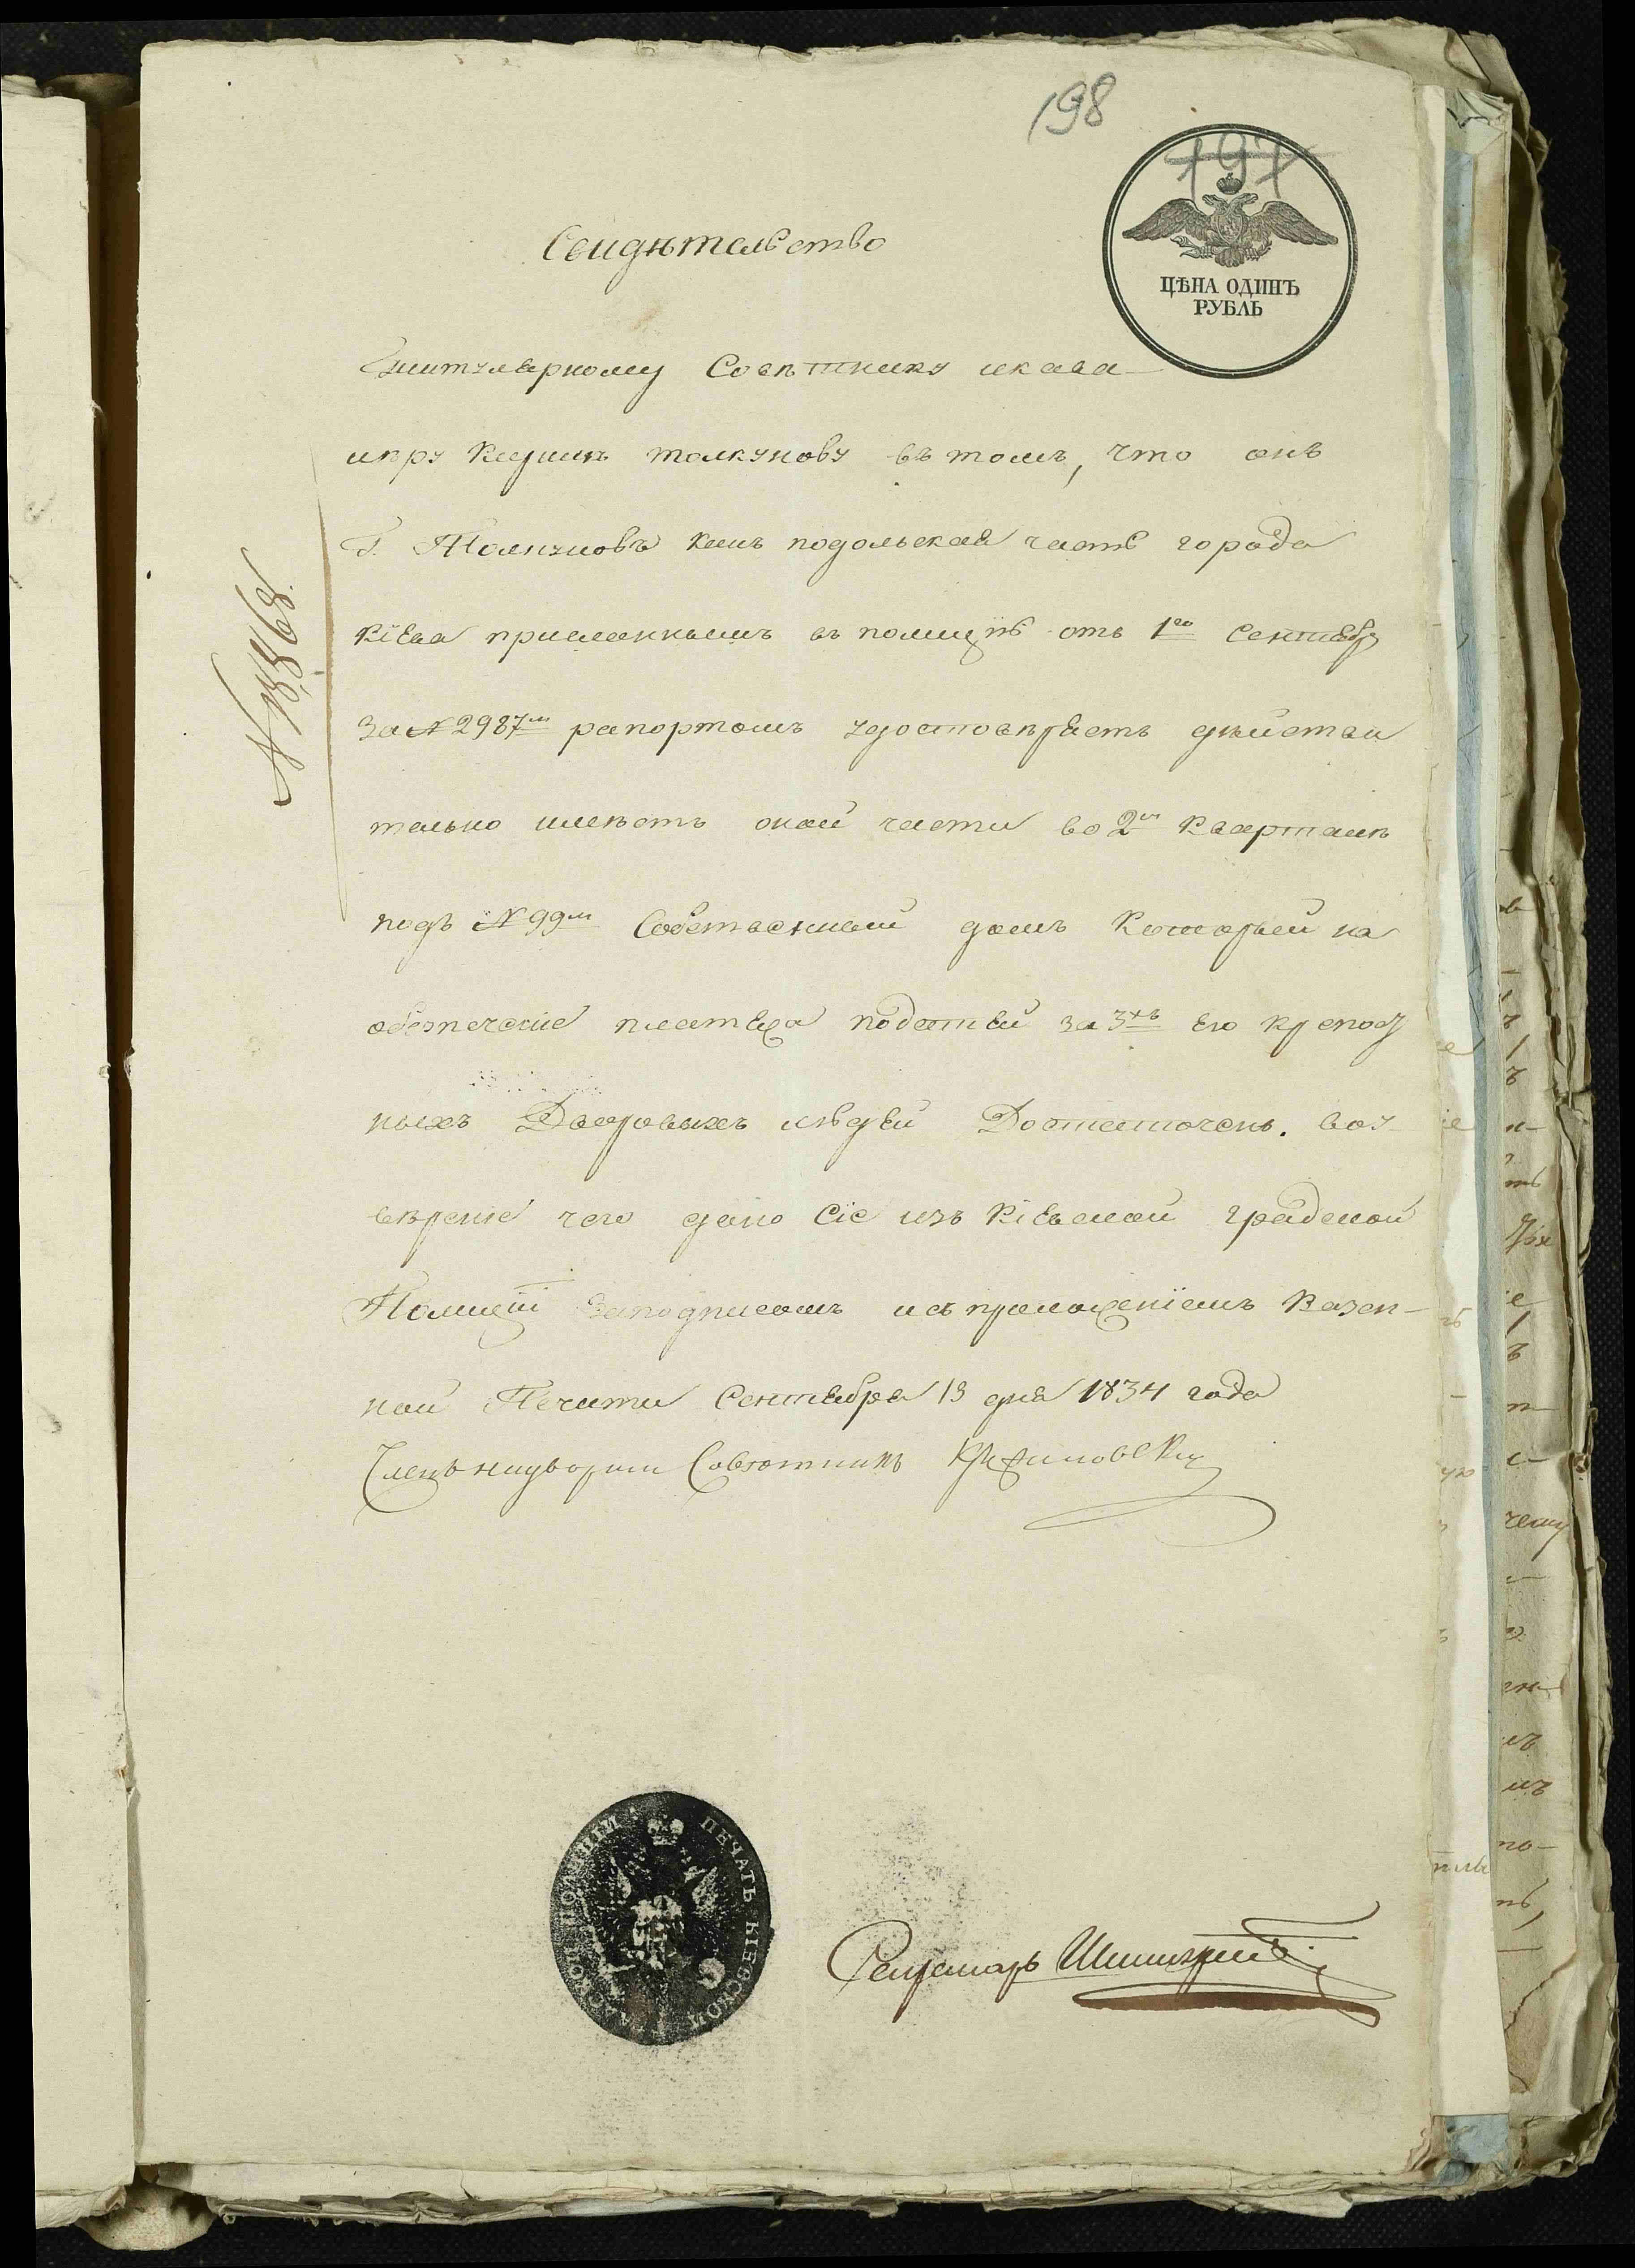 198
197
ЦѢНА ОДИНЪ
РУБЛЬ
Свидѣтельство
Титулярному Совѣтнику и кава-
леру толкунову въ томъ, что онъ
Г. Толкуновъ какъ подольская часть города
Кіева присланнымъ въ полицію отъ 1го Сентябр
за № 2987м рапортомъ удостовѣряетъ дѣйстви
тельно имѣетъ оной части во 2м Кварталѣ
подъ № 99м Собственный домъ который на
обезпеченіе платежа податей за 3хъ его крепос
ныхъ Дворовыхъ людей Достаточенъ. во у-
вѣреніе чего дано сіе изъ Кіевской градской
Полиціи за подписомъ и съ приложеніемъ Казен-
ной Печати Сентября 13 дня 1834 года
Совѣтникъ
ПЕЧАТЬ КІЕВСКОЙ ГРАДСКОЙ ПОЛИЦІИ
Секретарь